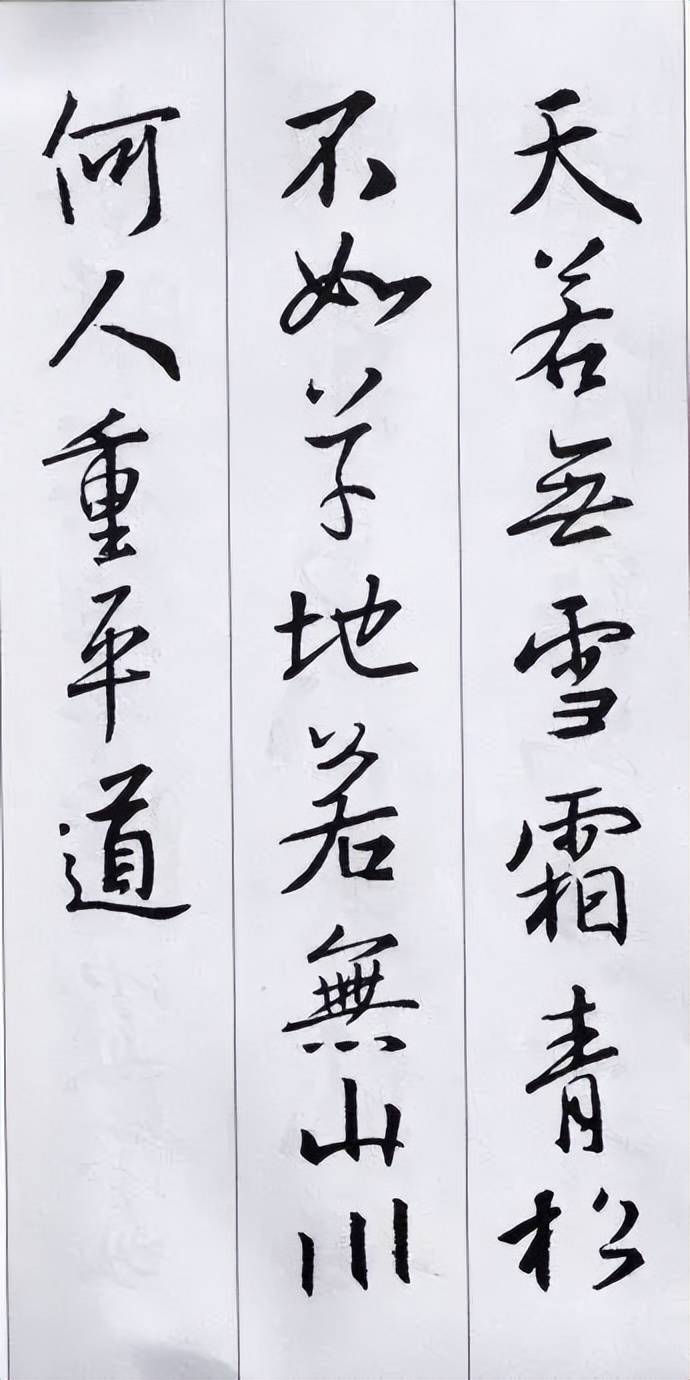 天若無雪霜青松
不如草地若無山川
何人重平道